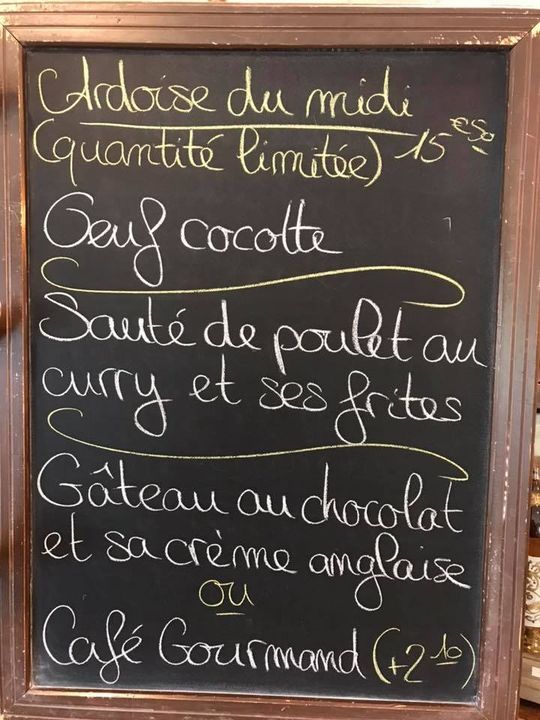 Ardoise du midi
(quantité limitée) 15 €50
Oeuf cocotte
Sauté de poulet au
curry et ses frites
Gâteau au chocolat
et sa crème anglaise
ou
Café Gourmand (+2 10)